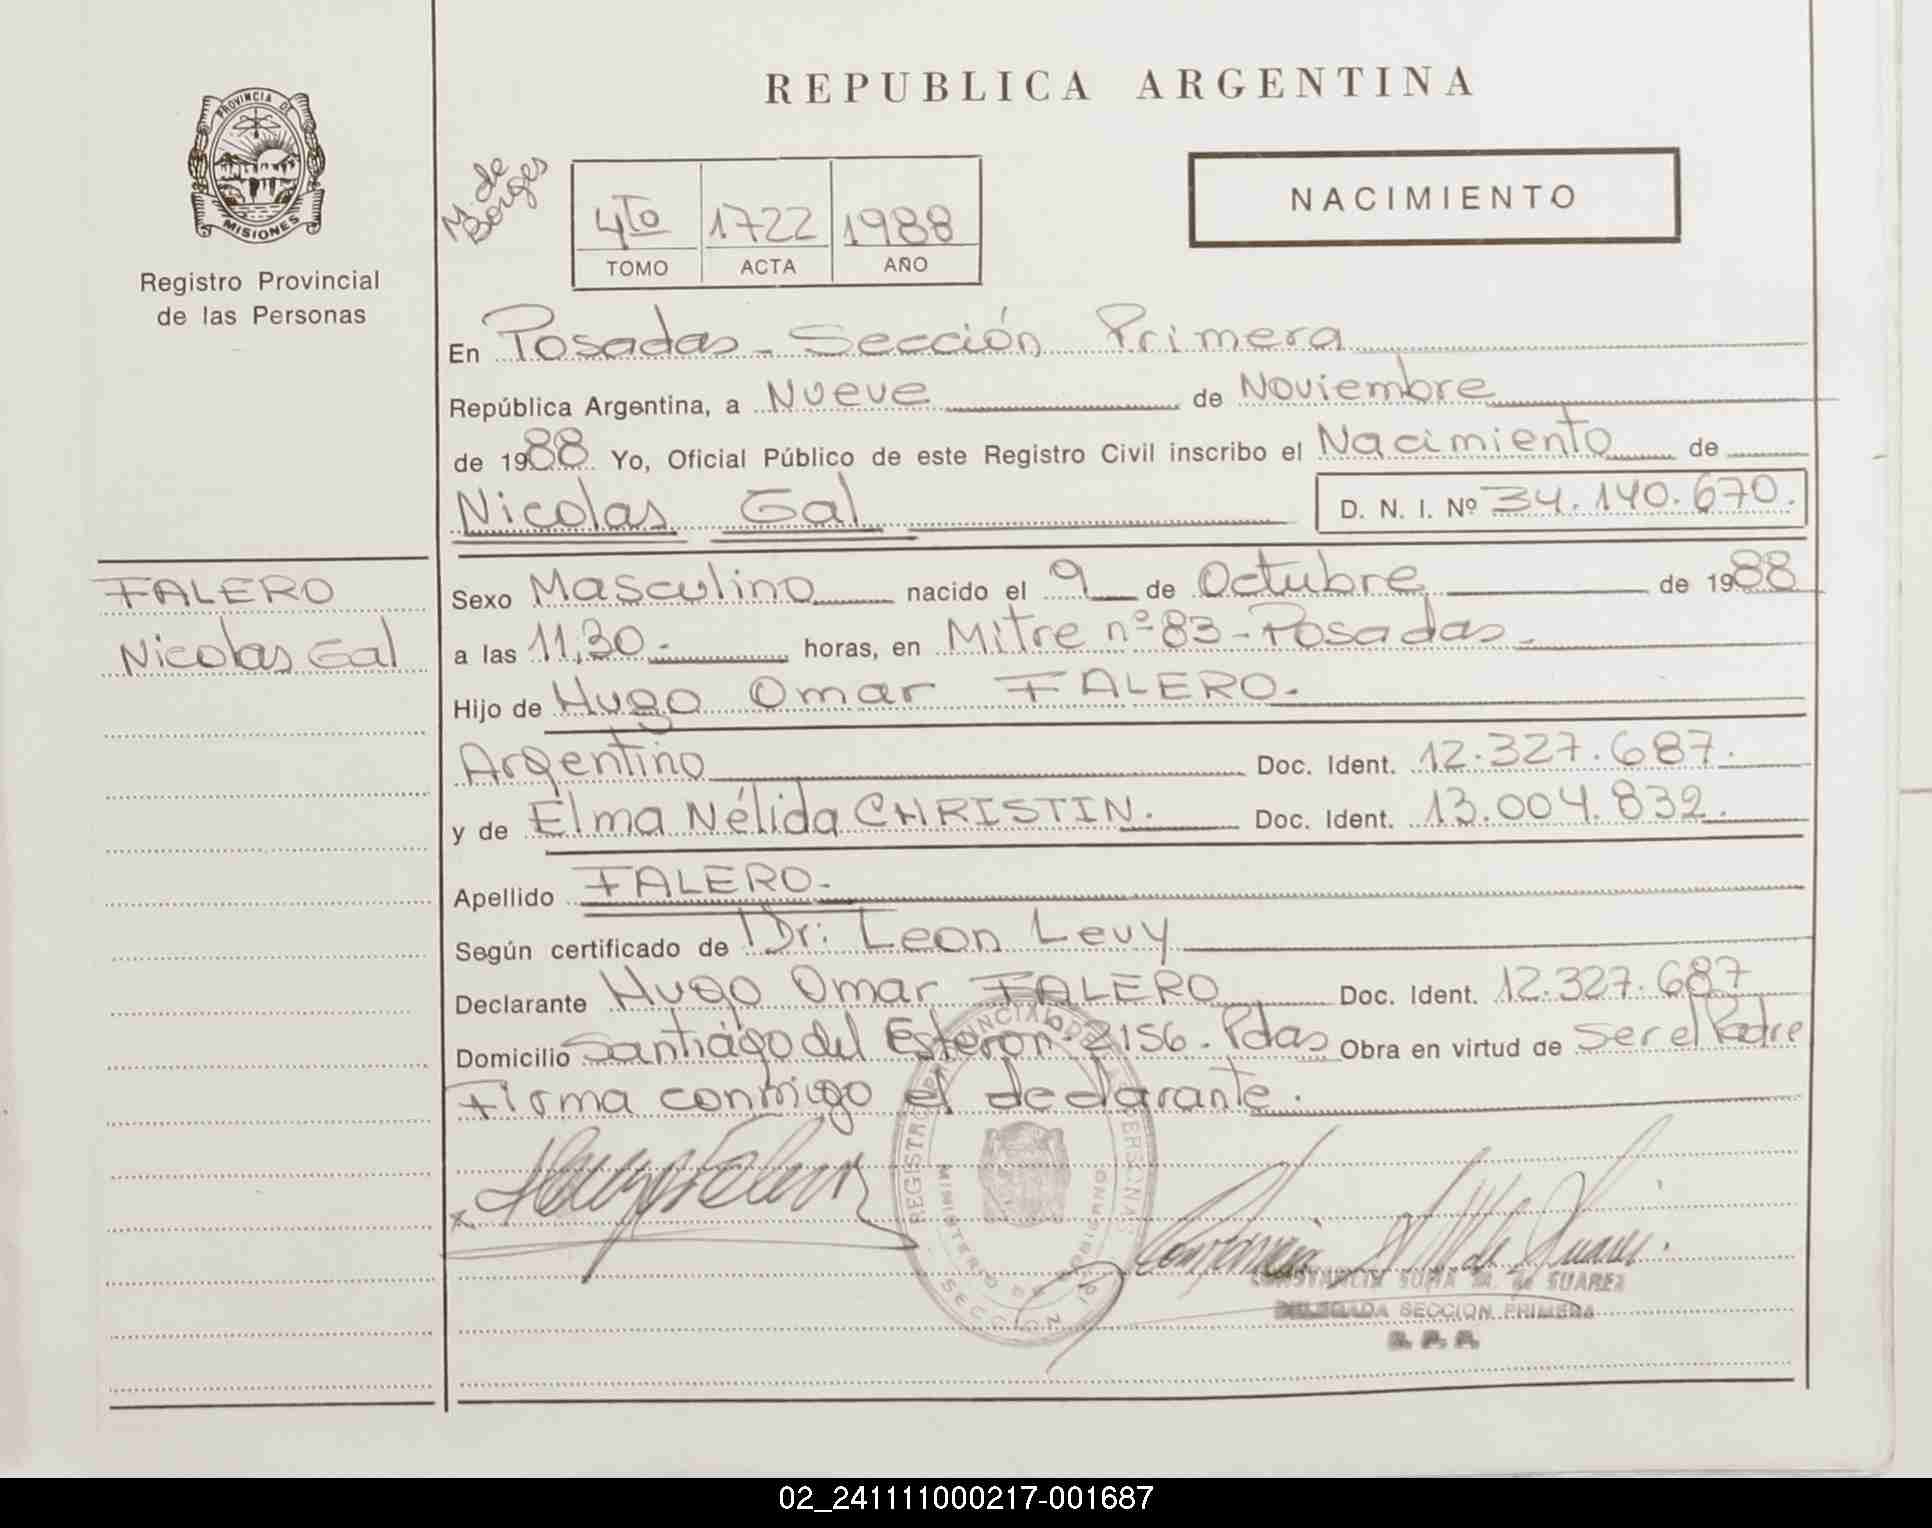 REPUBLICA ARGENTINA
PROVINCIA DE
MISIONES
Registro Provincial
de las Personas
M. de
Borges
4to 1722 1988
TOMO ACTA AÑO
NACIMIENTO
En Posadas - Sección Primera
República Argentina, a Nueve de Noviembre
de 1988 Yo, Oficial Público de este Registro Civil inscribo el Nacimiento de
Nicolas Gal D. N. I. Nº 34.140.670.
FALERO
Nicolas Gal
Sexo Masculino nacido el 9 de Octubre de 1988
a las 11,30.- horas, en Mitre nº 83 - Posadas.
Hijo de Hugo Omar FALERO.
Argentino Doc. Ident. 12.327.687.
y de Elma Nélida CHRISTIN. Doc. Ident. 13.004.832.
Apellido FALERO.
Según certificado de Dr: Leon Levy
Declarante Hugo Omar FALERO Doc. Ident. 12.327.687
Domicilio Santiago del Estero nº 2156. Pdas Obra en virtud de ser el Padre
Firma conmigo el declarante.
SUAREZ
DELEGADA SECCION PRIMERA
02_241111000217-001687